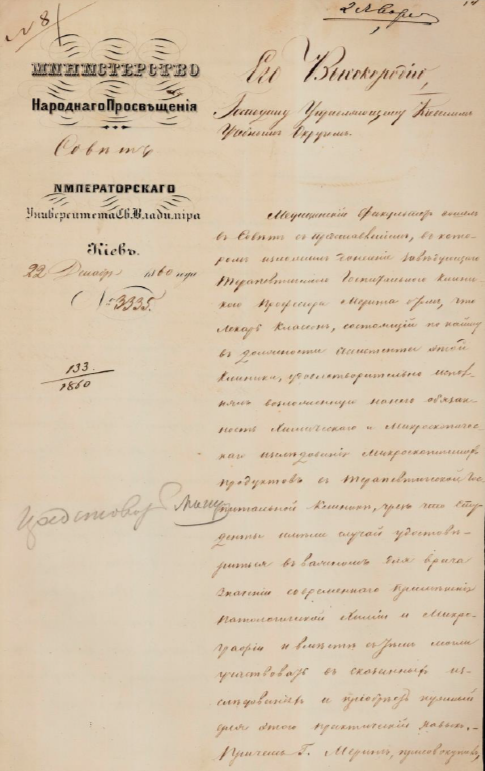 № 8
2 Января
МИНИСТЕРСТВО
Народнаго Просвѣщенія
Совѣтъ
ИМПЕРАТОРСКАГО
Университета Св. Владиміра
Кіевъ.
22 Декабря 1860 года
№ 3335.
133
1860
Его Высокородію,
Господину Управляющему Кіевскимъ
Учебнымъ Округомъ.
Медицинскій Факультетъ вошелъ
въ Совѣтъ съ представленіемъ, въ кото-
ромъ изъяснилъ донесеніе завѣдующаго
Терапевтическою Госпитальною Клини-
кою Профессора Меринга о томъ, что
лекарь Классонъ, состоящій по найму
въ должности Ассистента этой
Клиники, удовлетворительно испол-
няетъ возложенную на него обязан-
ность Химическаго и Микроскопичес-
каго изслѣдованія
продуктовъ въ Терапевтической Гос-
питальной Клиникѣ, чрезъ что Сту-
денты имѣли случай удостовѣ-
риться въ важномъ для врача
значеніи современнаго
Патологической Химіи и Микро-
графіи и вмѣстѣ съ тѣмъ могли
участвовать въ сказанныхъ из-
слѣдованіяхъ и пріобрѣсть нужный
для этого практическій навыкъ.
Причемъ Г. Мерингъ, присовокупляя,